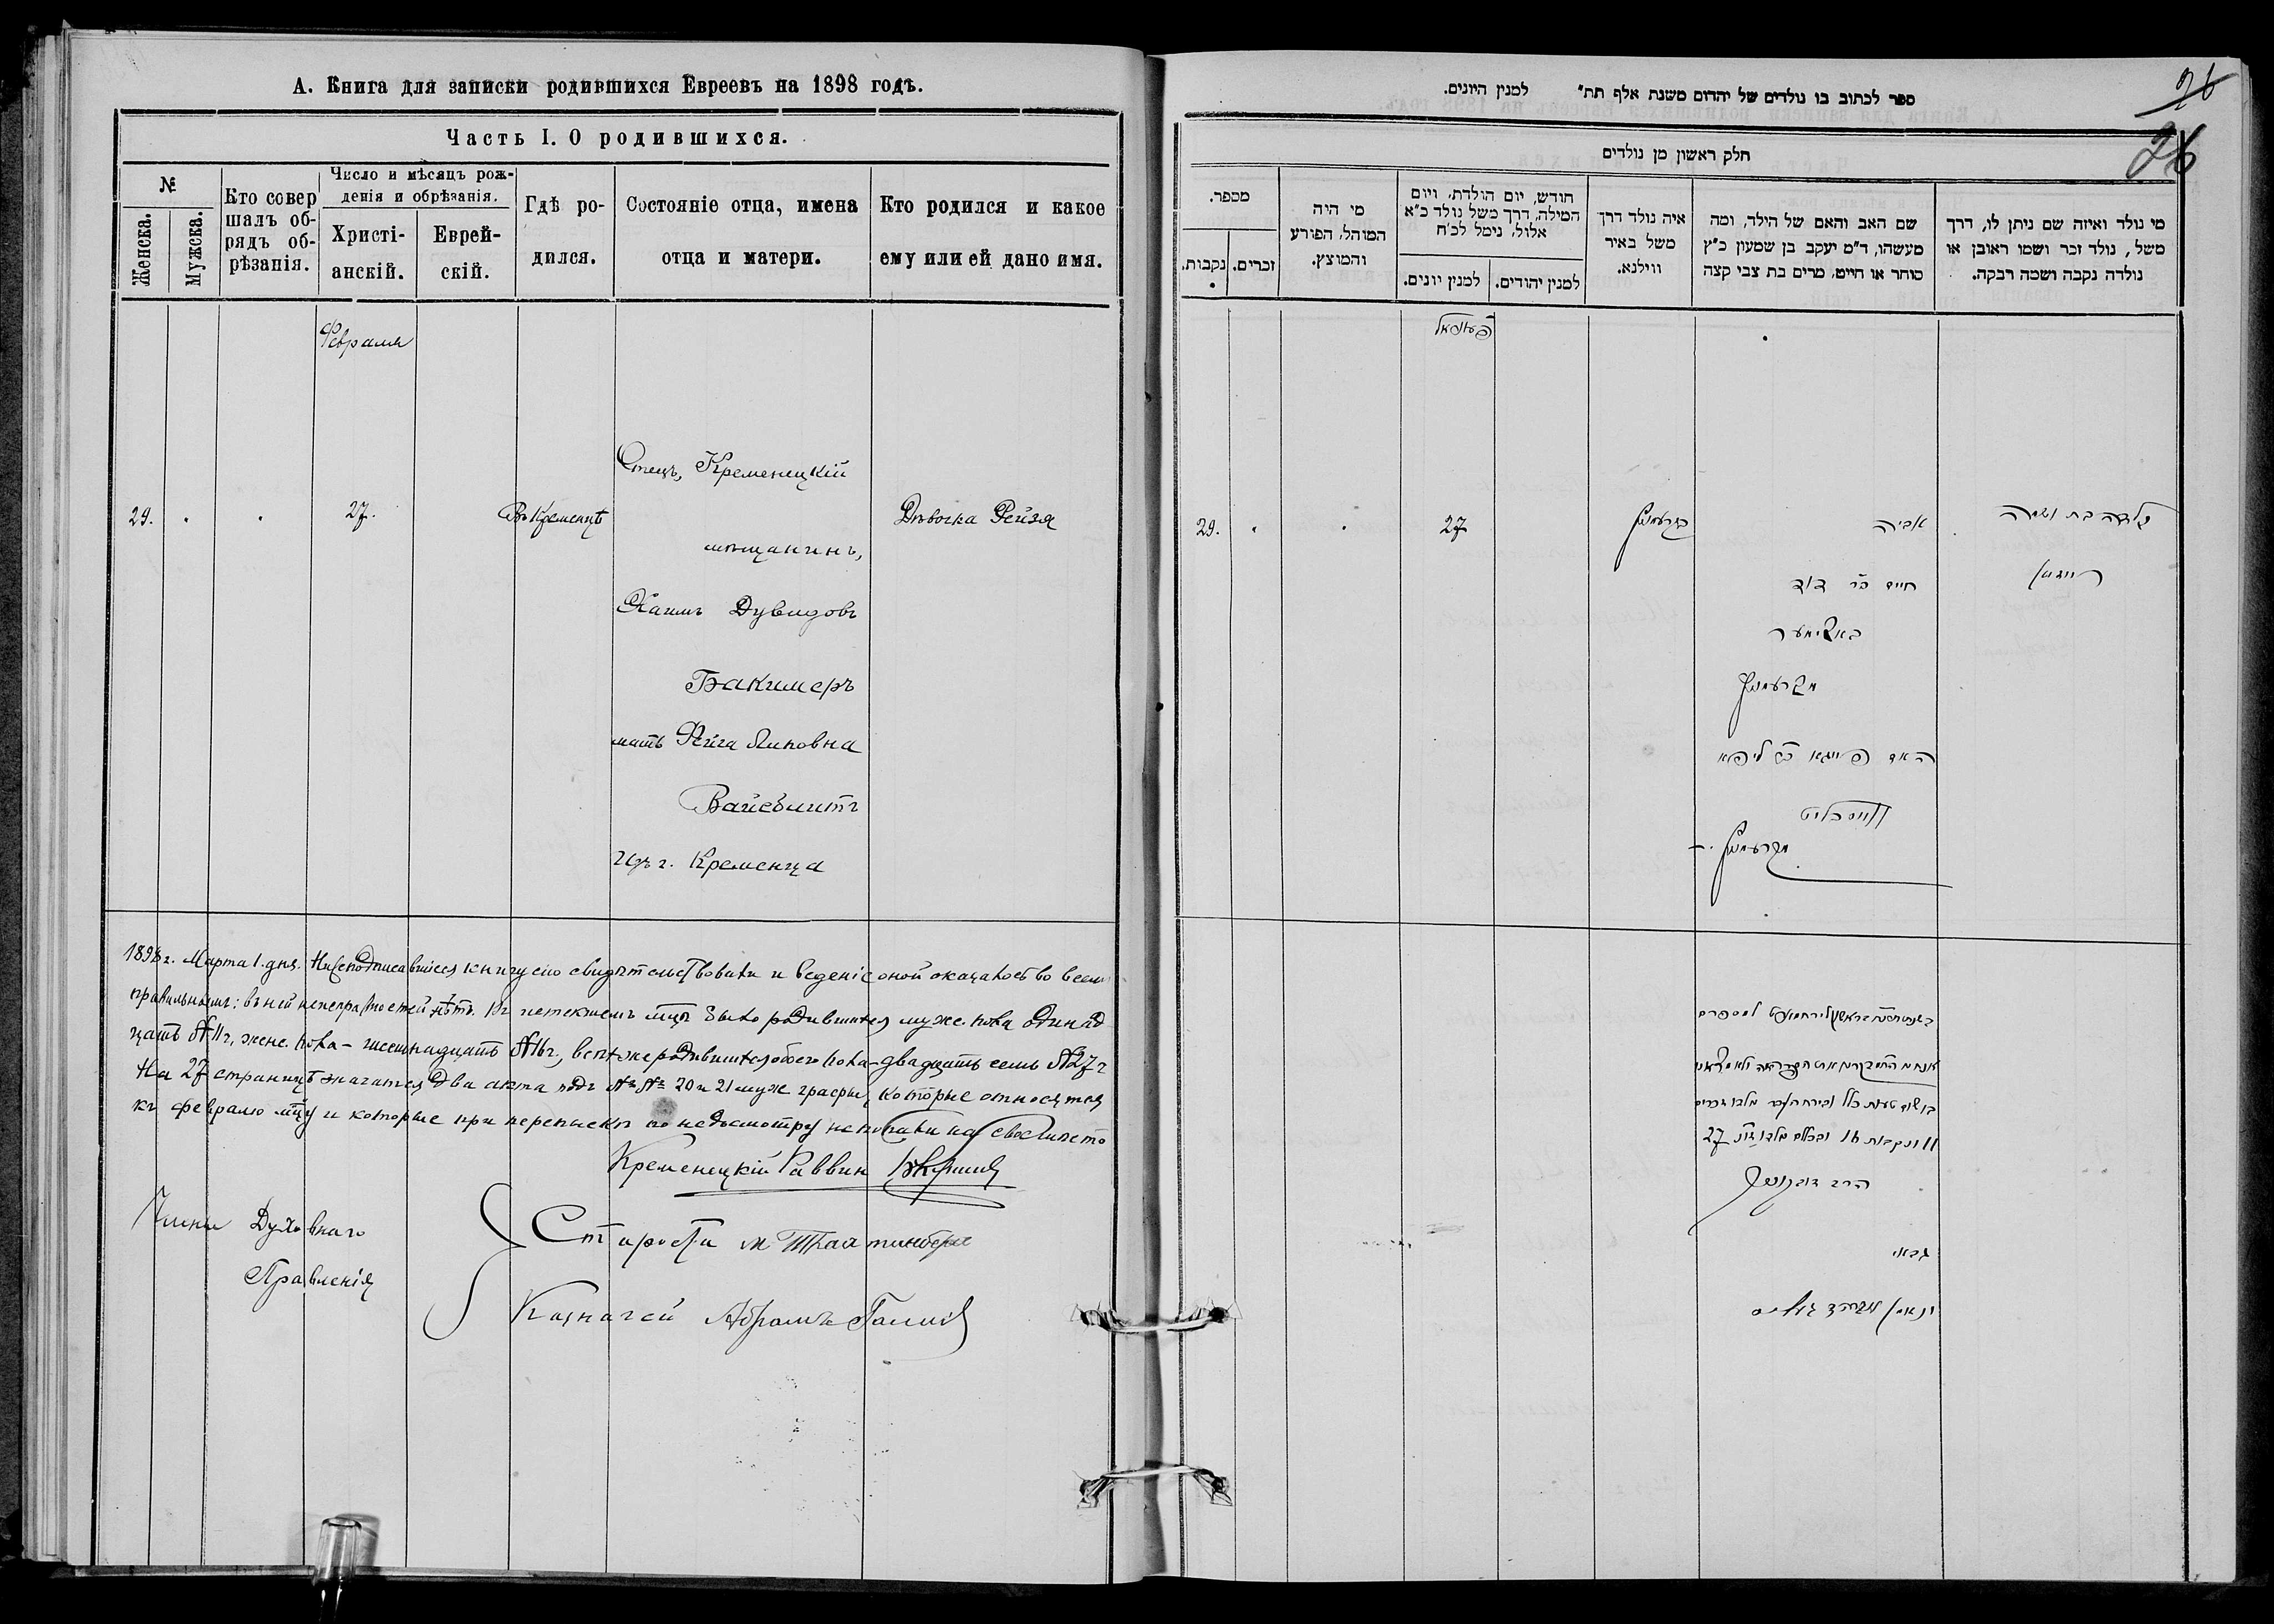 А. Книга для записки родившихся Евреевъ на 1898 годъ.
Часть I. О родившихся.
№
Женска.
Мужска.
Кто совер
шалъ об-
рядъ об-
рѣзанія.
Число и мѣсяцъ рож-
денія и обрѣзанія.
Христі-
анскій.
Еврей-
скій.
Гдѣ ро-
дился.
Состояніе отца, имена
отца и матери.
Кто родился и какое
ему или ей дано имя.
Февраля
29.
27.
Въ Кременцѣ
Отецъ, Кременецкій
мѣщанинъ,
Хаимъ Дувидовъ
Бакимеръ
мать Фейга Липовна
Вайсблитъ
изъ г. Кременца
Дѣвочка Рейзя
1898 г. Марта 1. дня. Нижеподписавшіеся книгу сію свидѣтельствовали и веденіе оной оказалось во всемъ
правильнымъ; въ ней неисправностей нѣтъ. Въ истекшемъ мцѣ было родившихся мужс. пола одинад
цать №11, женс. пола – шестнадцать №16, всего же родившихся обоего пола – двадцать семь №27
На 27 страницѣ значатся два акта подъ №№ 20 и 21 муж графы, которые относятся
къ февралю мцу и которые при перепискѣ по недосмотру не попали на свое мѣсто
Кременецкій Раввин
Члены Духовнаго
Правленія
Староста М
Казначей Абрамъ
ספר לכתוב בו נולדים של יהדום משנת אלף תת״ למנין היונים.
26
26
חלק ראשון מן נולדים
מספר.
נקבות.
זכרים.
מי היה
המוהל, הפורע
והמוצץ.
חודש, יום הולדת, ויום
המילה, דרך משל נולד כ״א
אלול, נימל לכ״ח
למנין יונים.
למנין יהודים.
איה נולד דרך
משל באיר
ווילנא.
שם האב והאם של הילד, ומה
מעשהו, ד״מ יעקב בן שמעון כ״ץ
סוחר או חייט, מרים בת צבי קצה
מי נולד ואיזה שם ניתן לו, דרך
משל, נולד זכר ושמו ראובן או
נולדה נקבה ושמה רבקה.
29.
27
בקרעמניץ
אביה
חיים בר דוד
באקימער
מקרעמניץ
האם פייגא בר ליפא
ווייסבליט
מקרעמניץ
נולדה בת ושמה
רייזא
11 ונקבות 16 27
הרב
גבאי